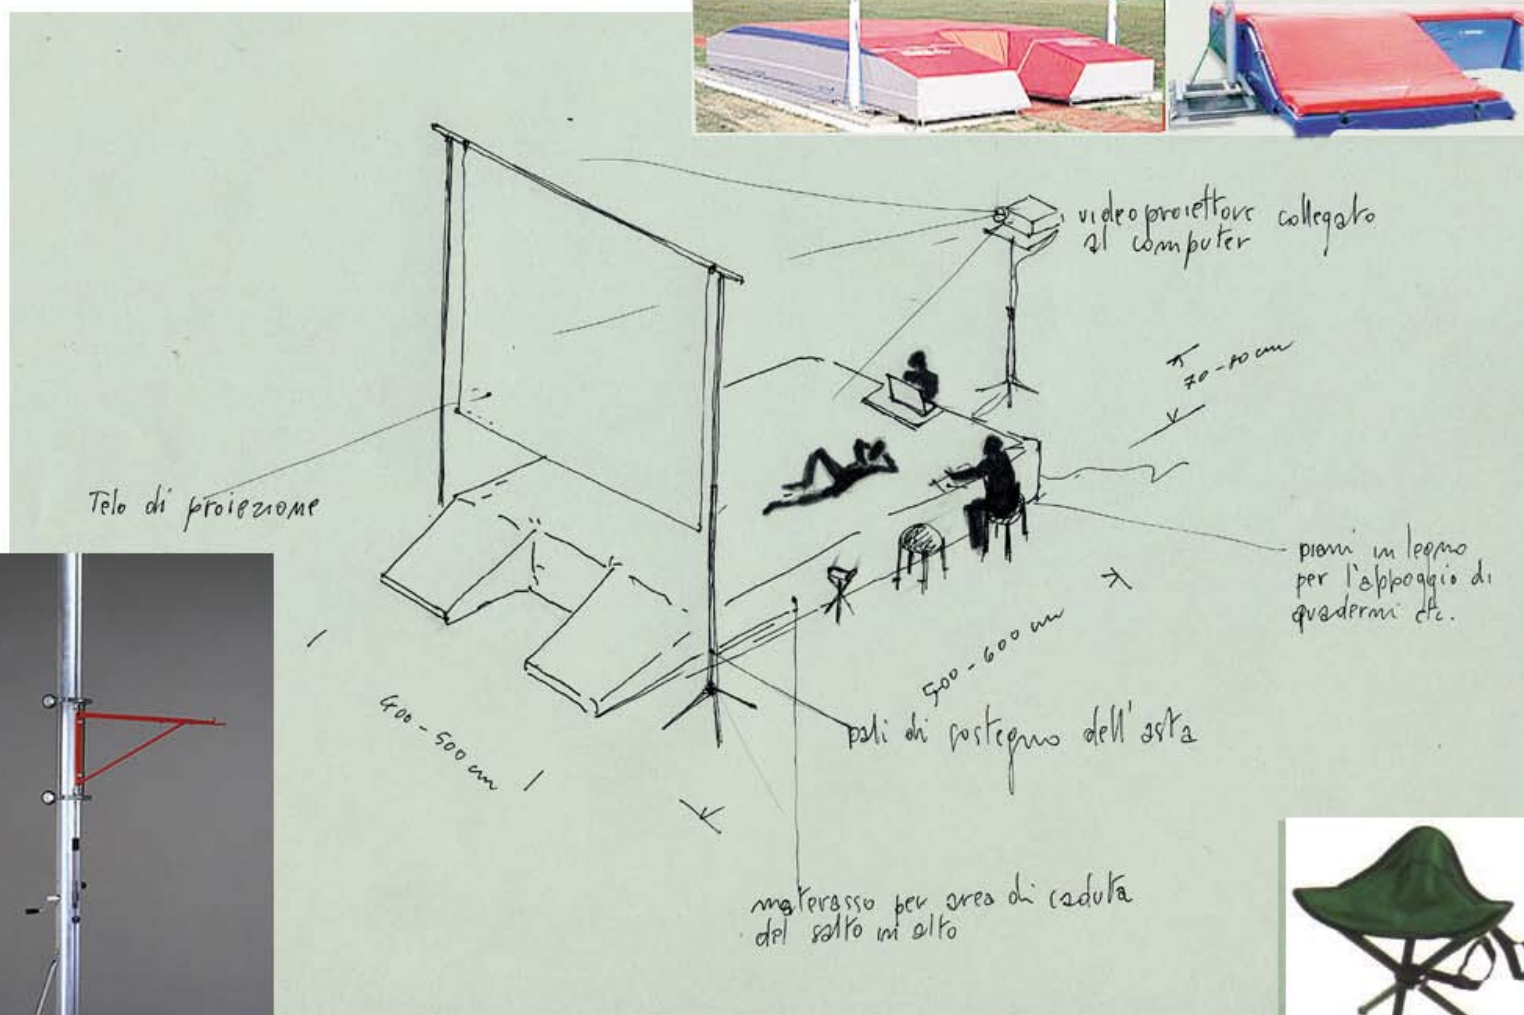 videoproiettore collegato
al computer
70-80 cm
Telo di proiezione
piani in legno
per l'appoggio di
quaderni etc.
500-600 cm
400-500 cm
pali di sostegno dell'asta
materasso per area di caduta
del salto in alto